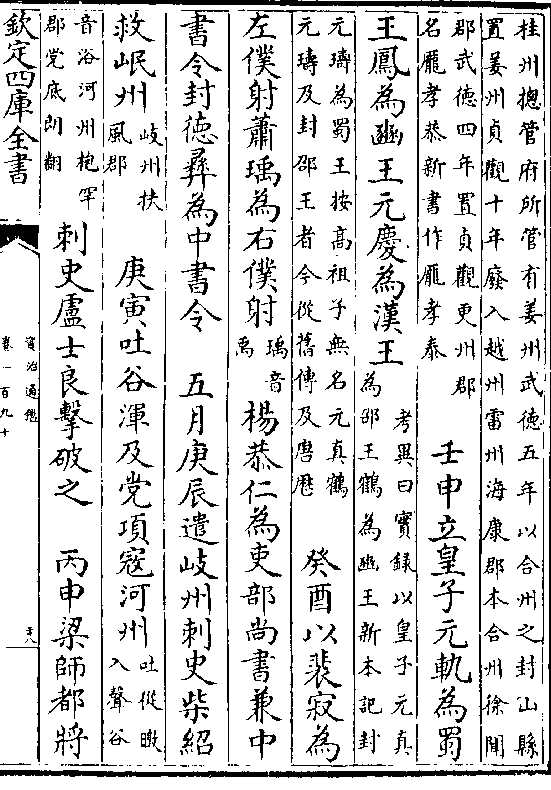 桂州摠管府所管有姜州武德五年以合州之封山縣
置姜州貞觀十年廢入越州雷州海康郡本合州徐聞
郡武德四年置貞觀更州郡
名龎孝恭新書作龎孝泰
壬申立皇子元軌為蜀
王鳳為豳王元慶為漢王
考異曰實録以皇子元真
為邵王鶴為豳王新本記封
元璹為蜀王按高祖子無名元真鶴
元璹及封邵王者今從舊傳及唐厯
癸酉以裴寂為
左僕射蕭瑀為右僕射
瑀音
禹
楊恭仁為吏部尚書兼中
書令封德彝為中書令 五月庚辰遣岐州刺史柴紹
救岷州
岐州扶
風郡
庚寅吐谷渾及党項寇河州
吐從暾
入聲谷
音浴河州枹罕
郡党底朗翻
刺史盧士良擊破之 丙申梁師都將
欽定四庫全書
資治通鑑
卷一百九十